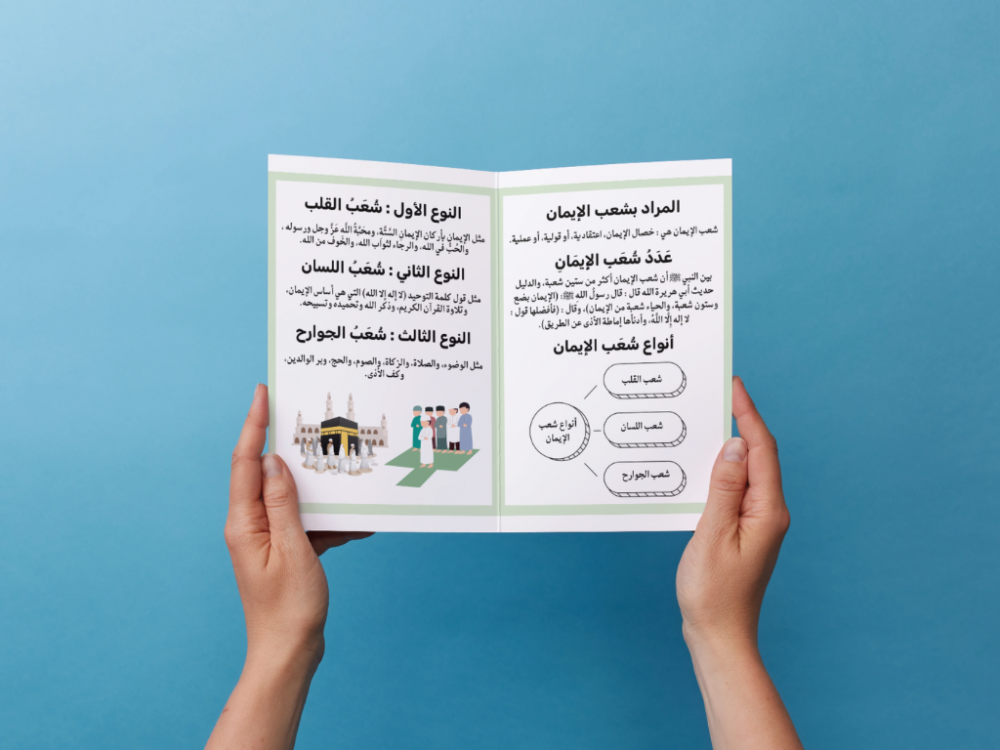 المراد بشعب الإيمان
شعب الإيمان هي : خصال الإيمان، اعتقادية، أو قولية، أو عملية.
عَدَدُ شُعَبِ الإيمَانِ
بين النبي ﷺ أن شعب الإيمان أكثر من ستين شعبة، والدليل
حديث أبي هريرة الله قال : قال رسول الله ﷺ: (الإيمان بضع
وستون شعبة، والحياء شعبة من الإيمان)، وقال : (فأفضلها قول :
لا إله إلا اللَّهُ، وأدناها إماطة الأذى عن الطريق).
أنواع شُعَب الإيمان
شعب القلب
أنواع شعب
الإيمان
شعب اللسان
شعب الجوارح
النوع الأول : شُعَبُ القلب
مثل الإيمان بأركان الإيمان السِّتَّة، ومحبَّةُ اللَّه عَزَّ وجل ورسوله ،
والحُبُّ في الله، والرجاء لثواب الله، والخَوف من الله.
النوع الثاني : شُعَبُ اللسان
مثل قول كلمة التوحيد (لا إله إلا الله) التي هي أساس الإيمان،
وتلاوة القرآن الكريم، وذكر الله وتحميده وتسبيحه.
النوع الثالث : شُعَبُ الجوارح
مثل الوضوء، والصلاة، والزكاة، والصوم، والحج، وبر الوالدين،
وكف الأذى.